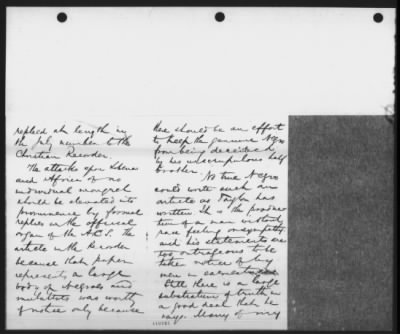 replied at length in
the July number to the
Christian Recorder.
The attacks upon Liberia
and Africa of no
individual mongrel
should be elevated into
prominence by formal
replies in the official
organ of the A.C.S. The
article in the Recorder
because that paper
represents a large
body of Negroes and
mulattoes was worth
of notice only because
there should be an effort
to keep the genuine Negro
from being deceived
by his unscrupulous half
brother.
No true Negro
could write such an
article as Taylor has
written. It is the production
of a man without
race feeling or sympathy
and his statements are
too outrageous to be
take notice of by
men in earnest.
Still there is a large
substratum of truth in
a good deal that he
says. Many of my